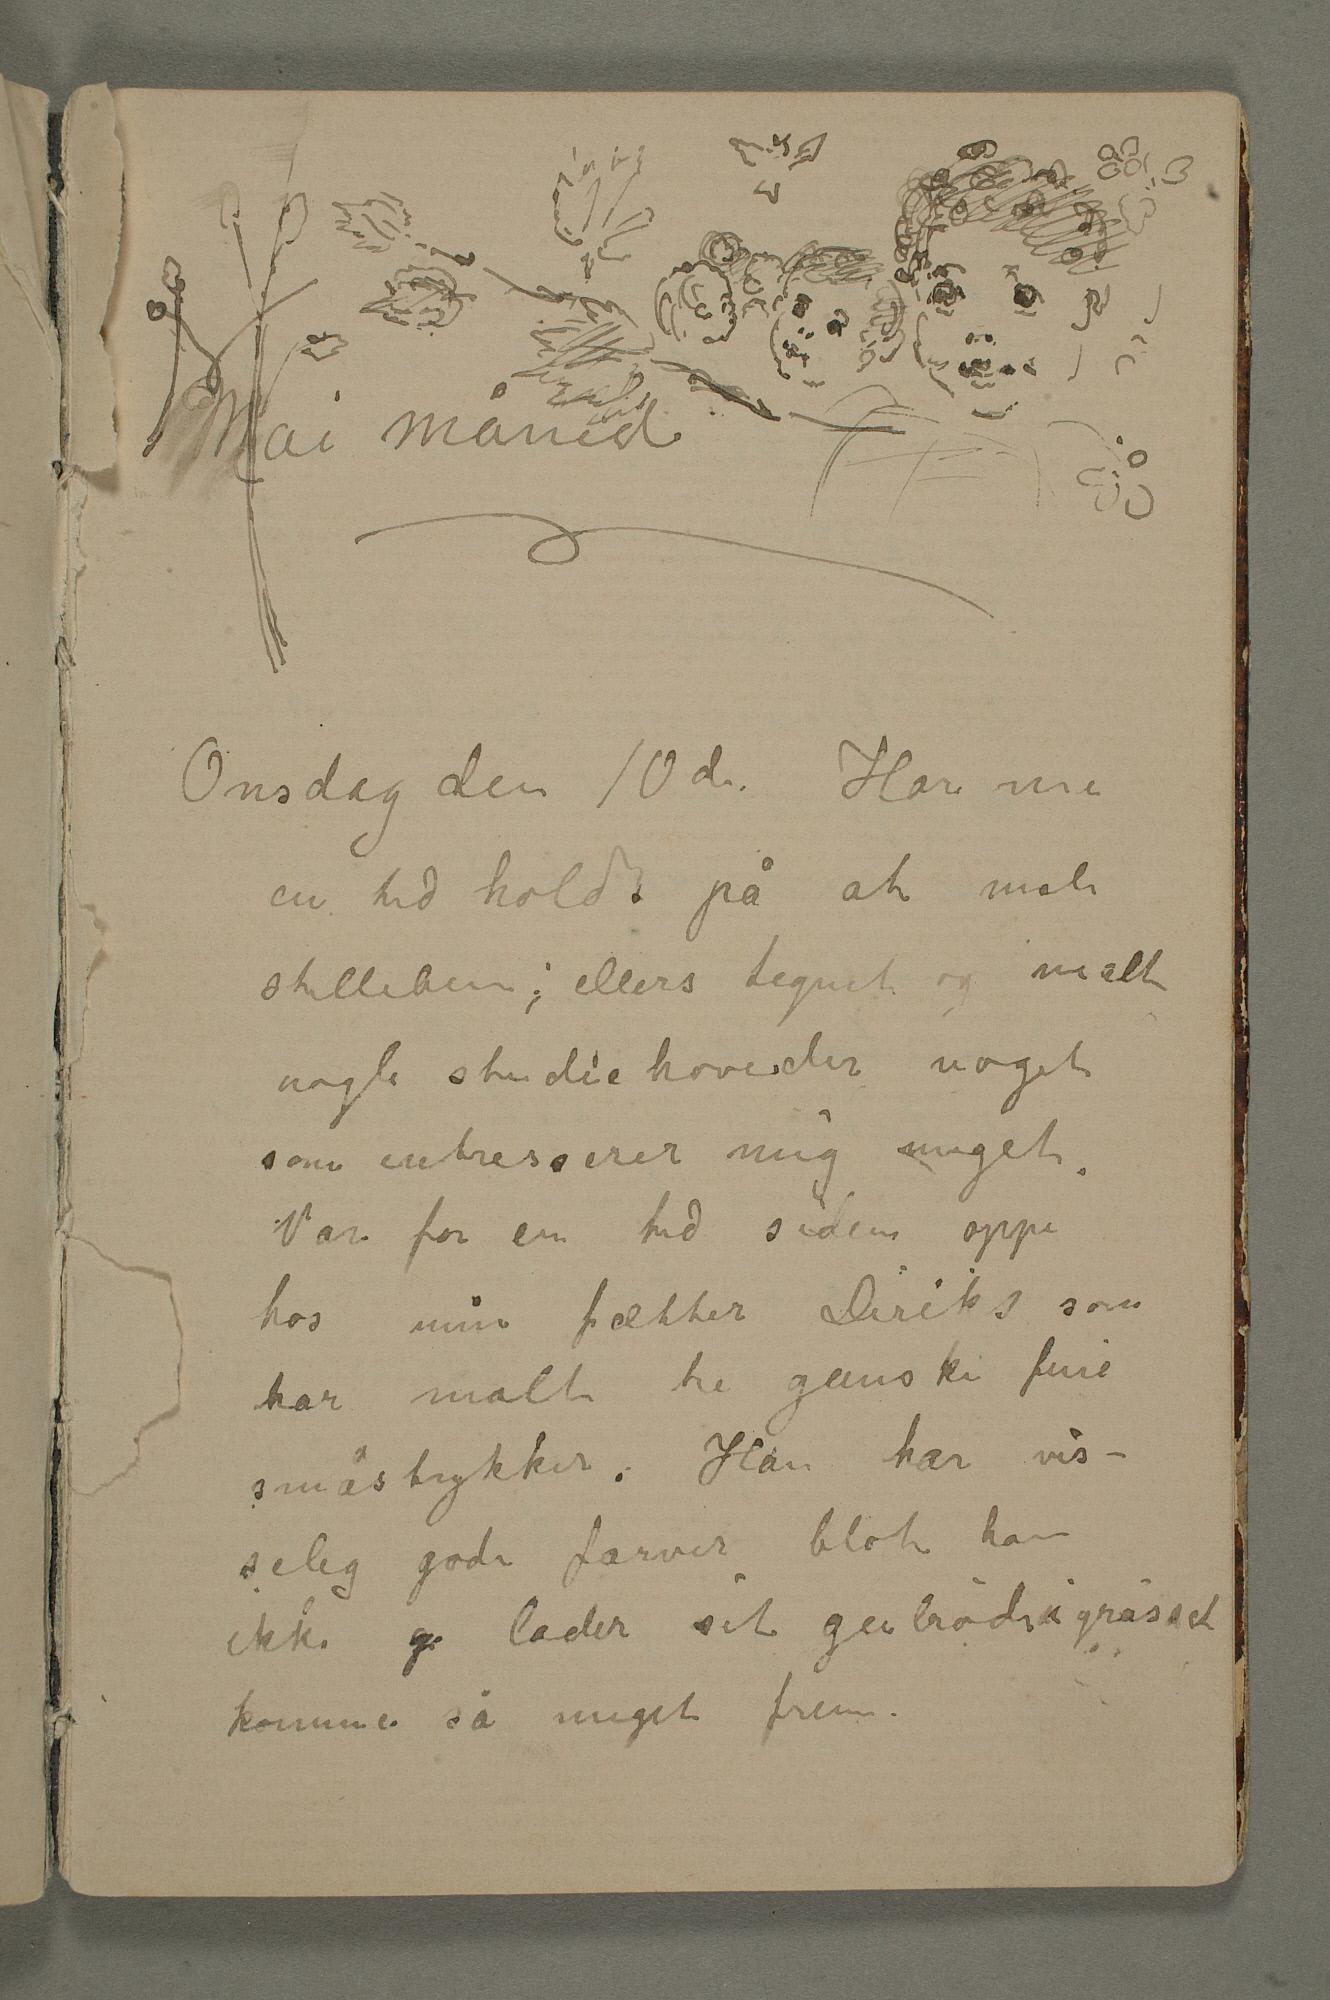 Mai måned
Onsdag den 10de. Har nu
en tid holdt på at male
stilleben; ellers tegnet og malt
nogle studiehoveder noget
som intresserer mig meget.
Var for en tid siden oppe
hos min fætter Diriks som
har malt tre ganske fine
småstykker. Han har vis-
selig gode farver blot han
ikke lader sit gulrøde grässet
komme så meget frem.